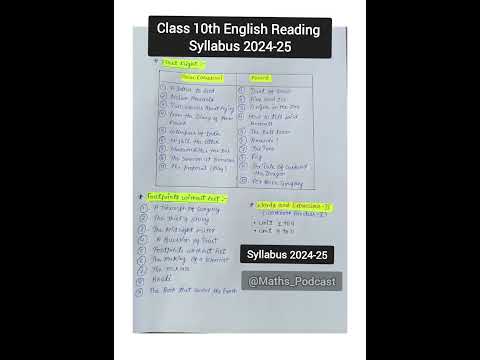 Class 10th English Reading
Syllabus 2024-25
First Flight :-
Prose
Poems
① A Letter to God
② Nelson Mandela
③ Two stories About Flying
④ From the Diary of Anne Frank
⑤ Glimpses of India
⑥ Mijbil the Otter
⑦ Madam Rides the Bus
⑧ The Sermon at Benares
⑨ The Proposal (Play)
① Dust of Snow
② Fire and Ice
③ A Tiger in the Zoo
④ How to Tell Wild Animals
⑤ The Ball Poem
⑥ Amanda !
⑦ The Trees
⑧ Fog
⑨ The Tale of Custard the Dragon
⑩ For Anne Gregory
Footprints without Feet :-
① A Triumph of Surgery
② The Thief's Story
③ The Midnight Visitor
④ A Question of Trust
⑤ Footprints without Feet
⑥ The Making of a Scientist
⑦ The Necklace
⑧ Bholi
⑨ The Book that Saved the Earth
Words and Expressions-II
Syllabus 2024-25
@Maths_Podcast